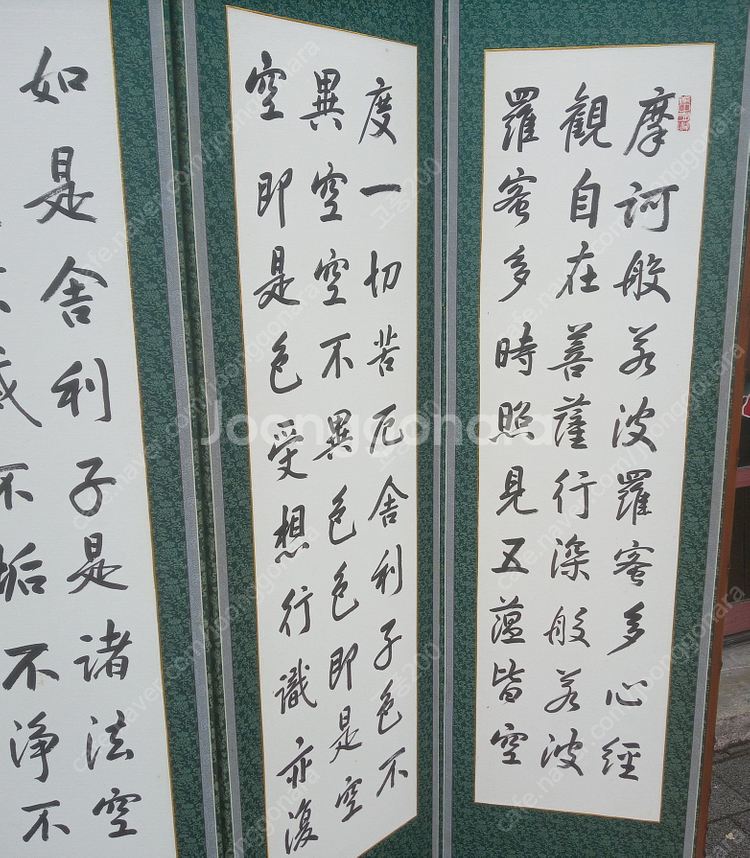 摩訶般若波羅蜜多心經
觀自在菩薩行深般若波
羅蜜多時照見五蘊皆空
度一切苦厄舍利子色不
異空空不異色色即是空
空即是色受想行識亦復
如是舍利子是諸法空
不垢不淨不
Joonggonara
cafe.naver.com/joonggonara